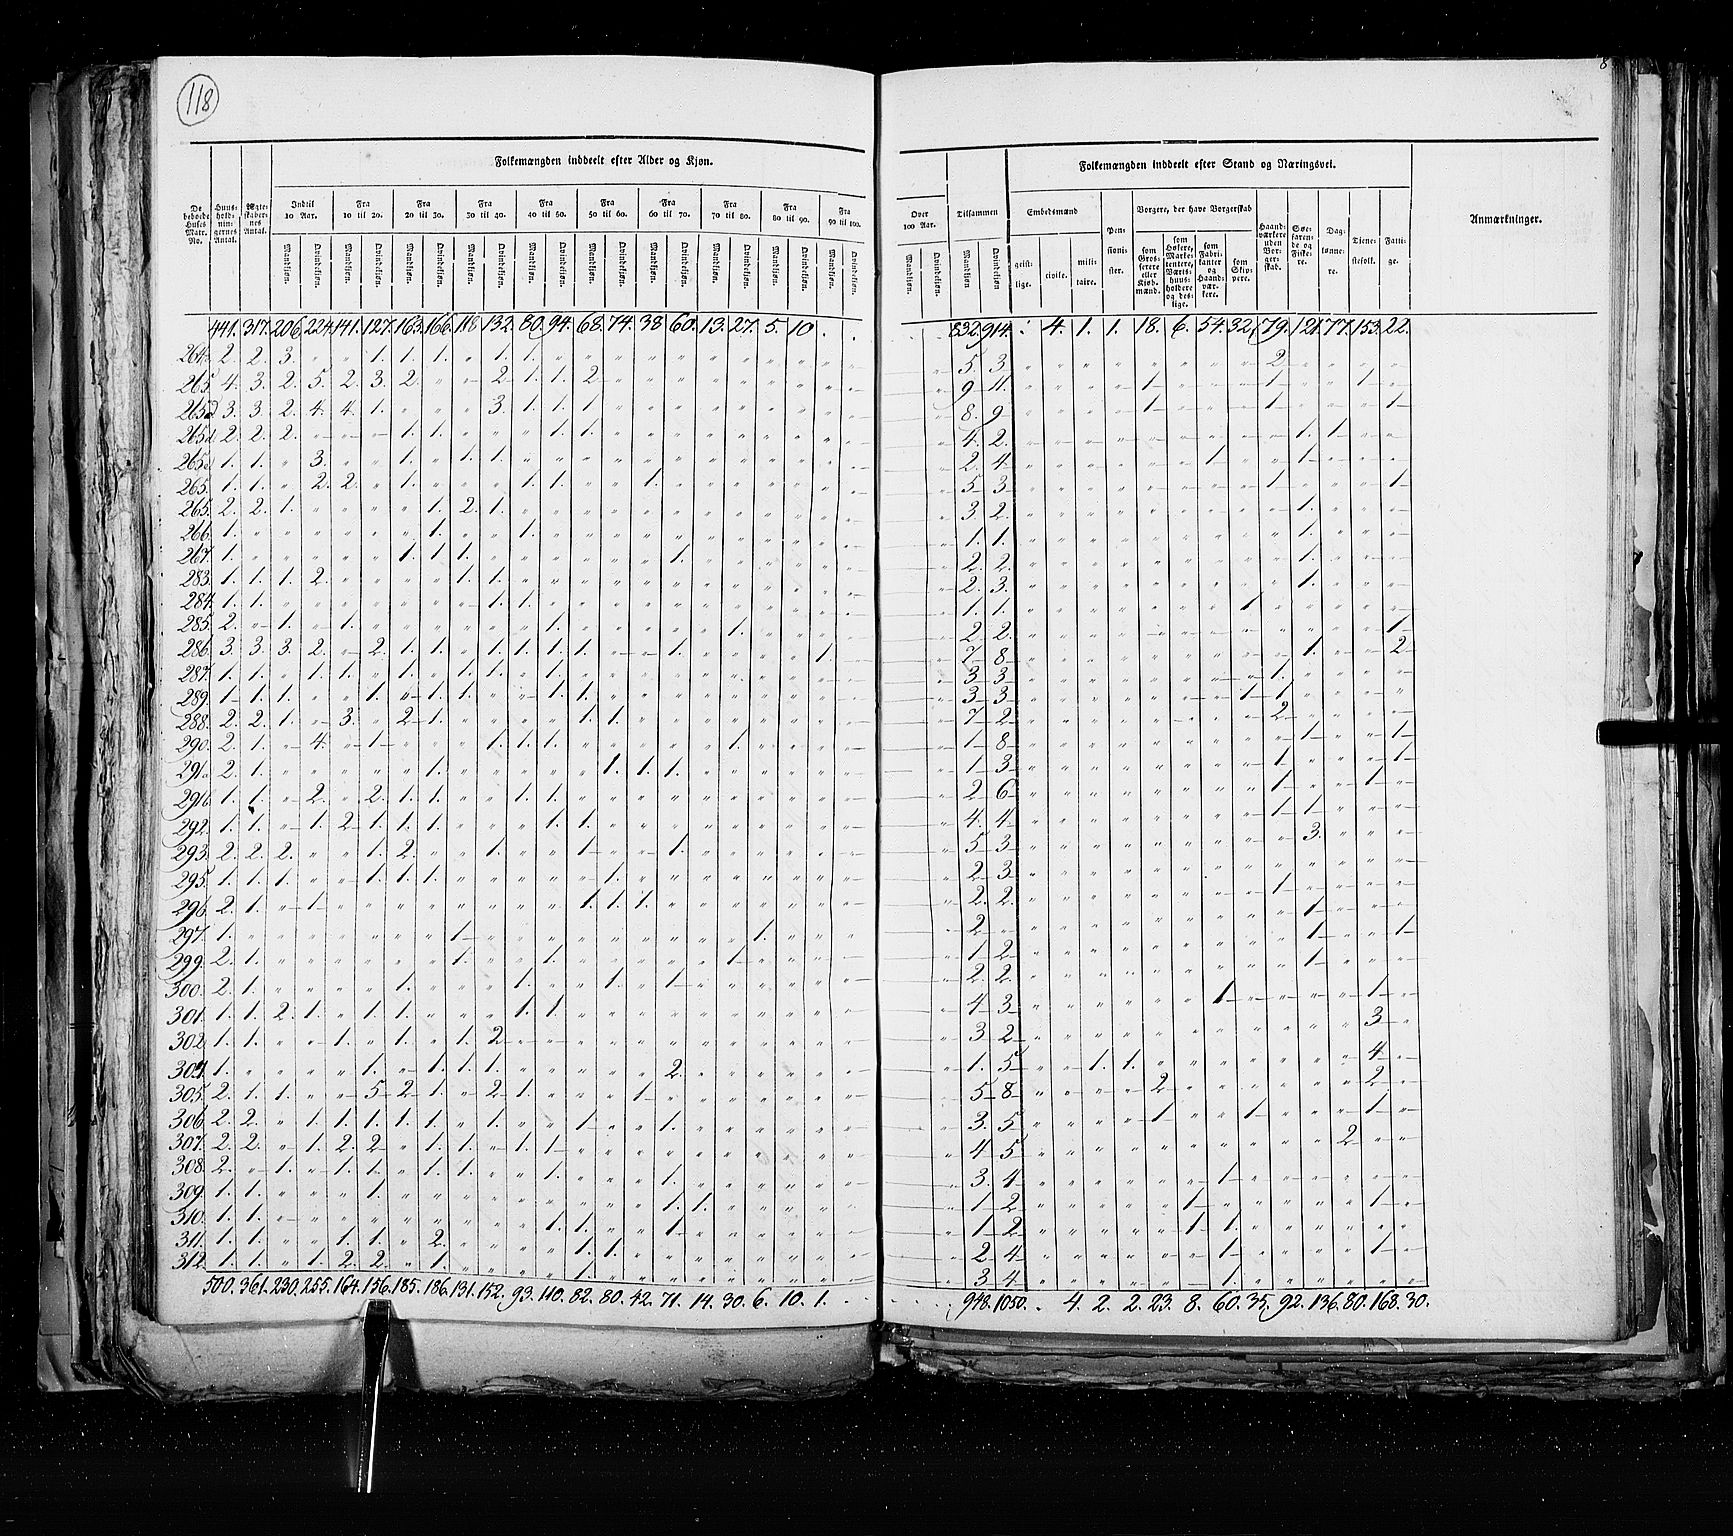 118
8
Folkemængden inddeelt efter Alder og Kjøn.
Folkemængden inddeelt efter Stand og Næringsvei.
De beboede Huses Matr. No.
Huus-hold-nin-gernes Antal.
Ægte-skaber-nes Antal.
Indtil 10 Aar.
Fra 10 til 20.
Fra 20 til 30.
Fra 30 til 40.
Fra 40 til 50.
Fra 50 til 60.
Fra 60 til 70.
Fra 70 til 80.
Fra 80 til 90.
Fra 90 til 100.
Over 100 Aar.
Tilsammen
Embedsmænd
geist-lige.
civile.
mili-taire.
Pen-sioni-ster.
Borgere, der have Borgerskab
som Gros-serere eller Kjøb-mænd.
som Høkere, Marke-tentere, Værts-huus-holdere og des-lige.
som Fabri-kanter og Haand-vær-kere.
som Skip-pere.
Haand-værkere uden Bor-ger-skab.
Søe-faren-de og Fiske-re.
Dag-lønne-re.
Tjene-stefolk.
Fatti-ge.
Anmærkninger.
Mandkjøn. Qvindekjøn. Mandkjøn. Qvindekjøn. Mandkjøn. Qvindekjøn. Mandkjøn. Qvindekjøn. Mandkjøn. Qvindekjøn. Mandkjøn. Qvindekjøn. Mandkjøn. Qvindekjøn. Mandkjøn. Qvindekjøn. Mandkjøn. Qvindekjøn. Mandkjøn. Qvindekjøn. Mandkjøn. Qvindekjøn. Mandkjøn. Qvindekjøn.
441. 317. 206. 224. 141. 127. 163. 166. 118. 132. 80. 94. 68. 74. 38. 60. 13. 27. 5. 10 . . 832. 914. . 4. 1. 1. 18. 6. 54. 32. 79. 121. 77. 153. 22.
264. 2. 2. 3. " " 1. 1. 1. " 1. 1. 5. 3. 2.
265. 4. 3. 2. 5. 2. 3. 2. " " 2. 1. 1. 2. 9. 11. 1. 1. 1.
265. 3. 3. 2. 4. 4. 1. " " " 3. 1. 1. 1. 8. 9. 1. 1. 1.
265. 2. 2. 2. " " " 1. 1. " " " 1. 1. 4. 2. 1. 1.
265. 1. 1. " 3. " " 1. " 1. 1. 2. 4. 1. 1.
265. 1. 1. " 2. 2. " 1. " " " 1. 1. " " 1. 5. 3. 1. 1.
265. 2. 2. 1. " " " " 1. 2. 1. 3. 2. 1.
266. 1. " " " " " " 1. " " 1. 1. 1. 1.
267. 1. " " " " " 1. 1. 1. " " " " " " 1. 2. 2. 1.
283. 1. 1. 1. 2. " " " " 1. 1. 2. 3. 1.
284. 1. 1. " " " " " " " 1. 1. 1. 1. 1.
285. 2. " 1. " 1. " " " " " " 1. " " " " " 1. 2. 2. 1.
286. 3. 3. 3. 2. " 2. 1. 1. " 1. 1. 1. 1. " " 1. " " " " 1. 7. 8. 1. 2.
287. 1. 1. " 1. 1. " 1. 1. 1. " 1. 3. 3. 1.
289. 1. 1. 1. " " 1. " 1. 1. " " 1. 1. 3. 3. 1. 1.
288. 2. 2. 1. " 3. " 2. 1. " " " " 1. 1. 7. 2. 2.
290. 2. 1. " 4. " 1. " " " 1. 1. 1. " " " " " 1. 1. 8. 1. 1.
291a 2. 1. " " " " " 1. " " " " " 1. 1. 1. 1. 3. 1. 1.
291b. 1. 1. " 2. " 2. 1. 1. " " 1. 1. 2. 6. 1. 1.
292. 1. 1. " 1. 2. 1. 1. 1. " " " 1. 1. 4. 4. 1. 1.
293. 2. 2. 2. " " 1. 2. " " 1. " " 1. " " 1. 5. 3. 3.
295. 1. 1. 1. " " 1. 1. 1. " " " " " 1. 2. 3.
296. 2. 1. " 1. " " " " " " " " 1. 1. 1. 2. 2. 1.
297. 1. " " " " " " " 1. " " " " " " " " " 1. 2. " 1.
299. 2. 1. " " " " " " 1. " " 1. " " " " " 1. 1. 2. 1. 1.
300. 2. 1. " " " " 1. " " " 1. " " 1. " 1. 2. 2. 1.
301. 1. 1. 2. 1. " 1. 1. " " " 1. 1. 4. 3. 1. 1.
302. 1. 1. " " 1. " 1. " 1. 2. 3. 2. 3.
304. 1. " " " " 1. " 1. 1. 1. " " " " " 2. 1. 5. 1. 1. 4.
305. 2. 1. 1. " " 5. 2. 1. " 2. 1. " " " 1. 5. 8. 2. 2.
306. 2. 2. " 1. 1. 1. 1. 1. " 1. " " 1. " " 1. 3. 5. 1. 1. 1.
307. 2. 2. " 1. 2. 2. " 1. 1. " 1. 1. 4. 5. 2.
308. 2. " 1. " 1. 1. " 1. 1. " " 1. " " " 1. 3. 4. 1.
309. 1. 1. " " " 1. " " " " " " " " " 1. 1. 1. 2. 1. 1.
310. 1. 1. " " " " " " " " " 1. 1. " " 1. 1. 2. 1. 1.
311. 1. 1. " " 1. 1. " 2. " " " " 1. 1. 2. 4. 1. 1.
312. 1. 1. " 1. 2. 2. " 1. " " " " 1. 3. 4. 1.
500. 361. 230. 255. 164. 156. 185. 186. 131. 152. 93. 110. 82. 80. 42. 71. 14. 30. 6. 10. 1. . 948. 1050. . 4. 2. 2. 23. 8. 60. 35. 92. 136. 80. 168. 30.